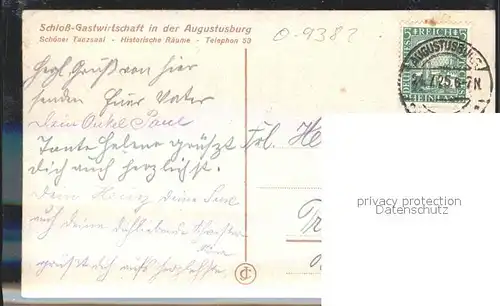 Schloß-Gastwirtschaft in der Augustusburg
Schöner Tanzsaal - Historische Räume - Telephon 53
O-9382
DEUTSCHES REICH 5
RHEINLAND
AUGUSTUSBURG
25. 6-7N.
Herzl. Gruß von hier
senden Euer Vater
Dein Onkel Paul
Tante Helene grüßt
dich auch herzlichst.
Dein Heinz Deine
auch deine dichliebende Schwester
grüßt dich aufs herzlichste
Frl. He
privacy protection
Datenschutz